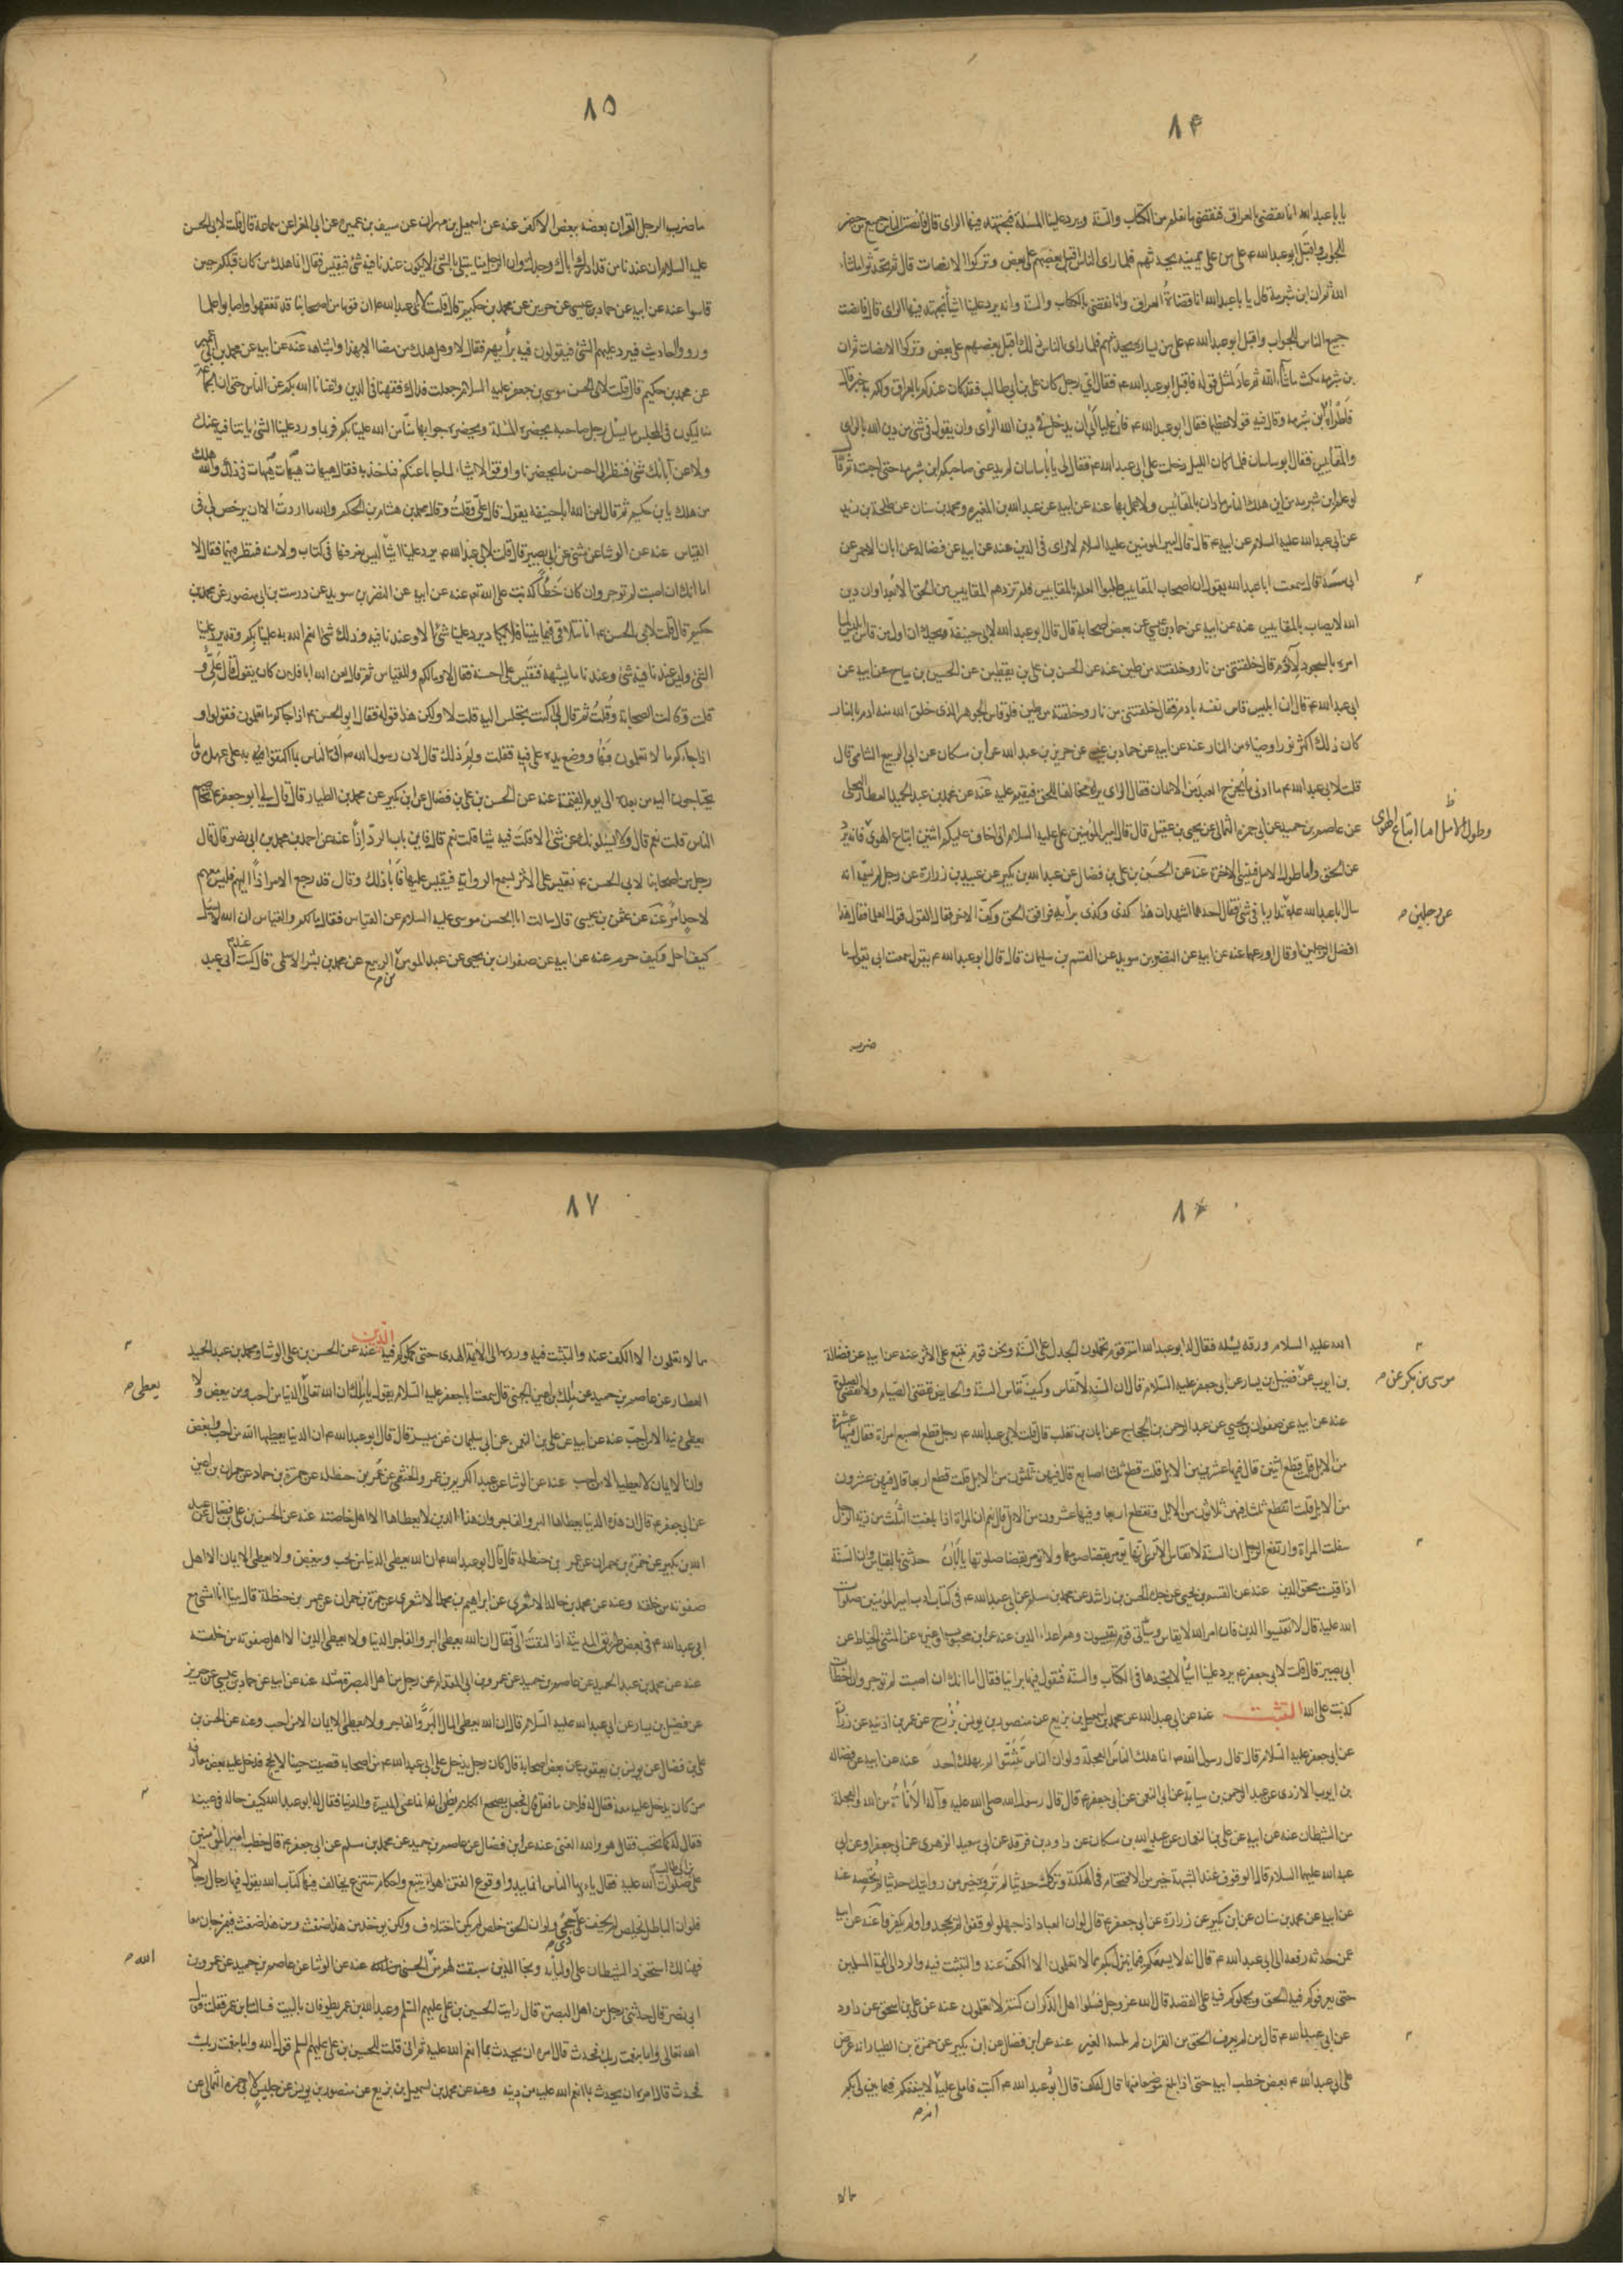 ٨۴
يا با عبد الله انا نقضى بالعراق فنقضى بما نعلم من الكتاب والسنة ويرد علينا المسئلة فنجتهد فيها الراى قال فانصت الناس جميع من حضر
للجواب واقبل ابو عبد الله ع على من على يمينه يحدثهم فلما راى الناس اقبل بعضهم على بعض وتركوا الانصات قال ثم تحدثوا ما شاء
الله ثم ان ابن شبرمة قال يا با عبد الله انا قضاة العراق وانا نقضى بالكتاب والسنة وانه يرد علينا اشياء نجتهد فيها الراى قال فانصت
جميع الناس للجواب واقبل ابو عبد الله ع على من يساره يحدثهم فلما راى الناس ذلك اقبل بعضهم على بعض وتركوا الانصات ثم ان
بن شبرمة مكث ما شاء الله ثم عاد لمثل قوله فاقبل ابو عبد الله ع فقال اى رجل كان على بن ابى طالب فقد كان عندكم بالعراق ولكم به خبر قال
فاطراه بن شبرمة وقال فيه قولا عظيما فقال ابو عبد الله ع فان عليا ابى ان يدخل فى دين الله الراى وان يقول فى شئ من دين الله بالراى
والمقاييس فقال ابو ساسان فلما كان الليل دخلت على ابى عبد الله ع فقال لى يا با ساسان لم يدعنى صاحبكم ابن شبرمة حتى اجبته ثم قال
لو علم ابن شبرمة من اين هلك الناس ما دان بالمقائيس ولا عمل بها عنه عن ابيه عن عبد الله بن المغيره ومحمد بن سنان عن طلحة بن زيد
عن ابى عبد الله عليه السلام عن ابيه ع قال قال امير المومنين عليه السلام لا راى فى الدين عنه عن ابيه عن فضاله عن ابان الاحمر عن
ابى شيبة قال سمعت ابا عبد الله يقول ان اصحاب المقاييس طلبوا العلم بالمقاييس فلم تزدهم المقاييس من الحق الا بعدا وان دين
الله لا يصاب بالمقاييس عنه عن ابيه عن حماد بن عيسى عن بعض اصحابه قال قال ابو عبد الله لابى حنيفة ويحك ان اول من قاس ابليس لما
امره بالسجود لآدم قال خلقتنى من نار وخلقته من طين عنه عن الحسن بن على بن يقطين عن الحسين بن مياح عن ابيه عن
ابى عبد الله ع قال ان ابليس قاس نفسه بادم فقال خلقتنى من نار وخلقته من طين فلو قاس الجوهر الذى خلق الله منه ادم بالنار
كان ذلك اكثر نورا وضياء من النار عنه عن ابيه عن حماد بن عيسى عن حريز بن عبد الله عن ابن مسكان عن ابى الربيع الشامى قال
قلت لابى عبد الله ع ما ادنى ما يخرج العبد من الايمان فقال الراى يراه مخالفا للحق فيقيم عليه عنه عن محمد بن عبد الحميد العطار البجلى
وطول الامل اما اتباع الهوى
عن عاصم بن حميد عن ابى حمزه الثمالى عن يحيى بن عقيل قال قال امير المؤمنين على عليه السلام انى اخاف عليكم اثنتين اتباع الهوى فانه يرد
عن الحق واما طول الامل فينسى الاخرة عنه عن الحسن بن على بن فضال عن عبد الله بن بكير عن عبيد بن زرارة عن رجل لم يسمه انه
عن رجلين م
سال ابا عبد الله ع تداريا فى شئ فقال احدهما اشهد ان هذا كذى وكذى برأيه فوافق الحق وكف الاخر فقال القول قول العلماء فقال هذا
افضل الرجلين او قال اورعهما عنه عن ابيه عن النضر بن سويد عن القسم بن سليمان قال قال ابو عبد الله ع يقول سمعت ابى يقول ما
ضرب
٨٥
ما ضرب الرجل القران بعضه ببعض الا كفر عنه عن اسمعيل بن مهران عن سيف بن عميرة عن ابى المغرا عن سماعة قال قلت لابى الحسن
عليه السلام ان عندنا من قد ادرك اباك وجدك وان الرجل منا يبتلى بالشئ لا يكون عندنا فيه شئ فيقيس فقال انما هلك من كان قبلكم حين
قاسوا عنه عن ابيه عن حماد بن عيسى عن حريز عن محمد بن حكيم قال قلت لابى عبد الله ع ان قوما من اصحابنا قد تفقهوا واصابوا علما
ورووا احاديث فيرد عليهم الشئ فيقولون فيه برأيهم فقال لا وهل هلك من مضا الا بهذا واشباهه عنه عن ابيه عن محمد بن ابى عمير
عن محمد بن حكيم قال قلت لابى الحسن موسى بن جعفر عليه السلام جعلت فداك فقهنا فى الدين واغنانا الله بكم عن الناس حتى ان الجماعة
منا ليكون فى المجلس ما يسئل رجل صاحبه يحضره المسئلة ويحضره جوابها منا من الله علينا بكم فربما ورد علينا الشئ لم ياتنا فيه عنك
ولا عن آبائك شئ فننظر الى احسن ما يحضرنا واوفق الاشياء لما جاءنا عنكم فناخذ به فقال هيهات هيهات هيهات فى ذلك والله هلك
من هلك يا بن حكيم ثم قال لعن الله ابا حنيفة يقول قال على وقلت وقال محمد بن هشام بن الحكم والله ما اردت الا ان يرخص لى فى
القياس عنه عن الوشا عن مثنى عن ابى بصير قال قلت لابى عبد الله ع يرد علينا اشيا ليس نعرفها فى كتاب ولا سنة فننظر فيها فقال لا
اما انك ان اصبت لم توجر وان كان خطأ كذبت على الله تع عنه عن ابيه عن النضر بن سويد عن درست بن ابى منصور عن محمد بن
حكيم قال قلت لابى الحسن ع انا نتلاقى فيما بيننا فلا يكاد يرد علينا شئ الا وعندنا فيه وذلك شئ انعم الله به علينا بكم وقد يرد علينا
الشئ وليس عندنا فيه شئ وعندنا ما يشبهه فنقيس على احسنه فقال لا وما لكم وللقياس ثم قال لعن الله ابا فلان كان يقول قال على و
قلت وقالت الصحابة وقلت ثم قال لى كنت تجلس اليه قلت لا ولكن هذا قوله فقال ابو الحسن ع اذا جاءكم ما تعلمون فقولوا و
اذا جاءكم ما لا تعلمون فها ووضع يده على فيه فقلت ولم ذلك قال لان رسول الله ص اتى الناس بما اكتفوا به على عهده وما
يحتاجون اليه من بعده الى يوم القيمة عنه عن الحسن بن على بن فضال عن ابن بكير عن محمد بن الطيار قال قال لى ابو جعفر ع تخاصم
الناس قلت نعم قال ولا يسئلونك عن شئ الا قلت فيه شيا قلت نعم قال فاين باب الرد اذا عنه عن احمد بن محمد بن ابى نصر قال قال
رجل من اصحابنا لابى الحسن ع نقيس على الاثر نسمع الرواية فنقيس عليها فابا ذلك وقال قد رجع الامر اذا اليهم فليس معهم
لاحد امر عنه عن عثمن بن عيسى قال سالت ابا الحسن موسى عليه السلام عن القياس فقال ما لكم وللقياس ان الله لا يسئل
كيف احل وكيف حرم عنه عن ابيه عن صفوان بن يحيى عن عبد المومن بن الربيع عن محمد بن بشر الاسلمى قال كنت عند ابى عبد
٨۶
الله عليه السلام ورقه يسئله فقال له ابو عبد الله انتم قوم تحملون الجدل على السنة ونحن قوم نتبع على الاثر عنه عن ابيه عن فضالة
موسى بن بكر عن م
بن ايوب عن فضيل بن يسار عن ابى جعفر عليه السلام قال ان السنة لا تقاس وكيف تقاس السنة والحايض تقضى الصيام ولا تقضى الصلوة
عنه عن ابيه عن صفوان بن يحيى عن عبد الرحمن بن الحجاج عن ابان بن تغلب قال قلت لابى عبد الله ع رجل قطع اصبع امراة فقال فيها عشرة
من الابل قلت قطع اثنتين قال فيها عشرين من الابل قلت قطع ثلثا اصابع قال فيهن ثلثون من الابل قلت قطع اربعا قال فيهن عشرون
من الابل قلت ايقطع ثلثا فيهن ثلاثون من الابل وتقطع اربعا وفيها عشرون من الابل قال نعم ان المراة اذا بلغت الثلث من دية الرجل
سفلت المراة وارتفع الرجل ان السنة لا تقاس الا ترى انها تومر بقضا صومها ولا تومر بقضا صلوتها يا ابان حدثنى بالقياس وان السنة
اذا قيست محق الدين عنه عن القسم بن يحيى عن جده الحسن بن راشد عن محمد بن مسلم عن ابى عبد الله ع فى كتاب ادب امير المؤمنين صلوات
الله عليه قال لا تقيسوا الدين فان امر الله لا يقاس وسياتى قوم يقيسون وهم اعداء الدين عنه عن ابن محبوب او غيره عن المثنى الحناط عن
ابى بصير قال قلت لابى جعفر ع يرد علينا اشيا لا نجدها فى الكتاب والسنة فنقول فيها براينا فقال اما انك ان اصبت لم توجر وان اخطات
كذبت على الله التثبت عنه عن ابى عبد الله عن محمد بن اسمعيل بن بزيع عن منصور بن يونس بزرج عن عمر بن اذينه عن زرارة
عن ابى جعفر عليه السلام قال قال رسول الله ص انما هلك الناس العجلة ولو ان الناس تثبتوا لم يهلك احد عنه عن ابيه عن فضاله
بن ايوب الازدى عن عبد الرحمن بن سيابة عن ابى النعمن عن ابى جعفر ع قال قال رسول الله صلى الله عليه وآله الاناة من الله والعجلة
من الشيطان عنه عن ابيه عن على بن النعمان عن عبد الله بن مسكان عن داود بن فرقد عن ابى سعيد الزهرى عن ابى جعفر او عن ابى
عبد الله عليهما السلام قال الوقوف عند الشبهة خير من الاقتحام فى الهلكة وتركك حديثا لم تروه خير من روايتك حديثا لم تحصه عنه
عن ابيه عن محمد بن سنان عن ابن بكير عن زرارة عن ابى جعفر ع قال لو ان العباد اذا جهلوا وقفوا لم يجحدوا ولم يكفروا عنه عن ابيه
عن حدثه رفعه الى ابى عبد الله ع قال انه لا يسعكم فيما ينزل بكم مما لا تعلمون الا الكف عنه والتثبت فيه والرد الى ائمة المسلمين
حتى يعرفوكم فيه الحق ويحملوكم فيه على القصد قال الله عز وجل فسئلوا اهل الذكر ان كنتم لا تعلمون عنه عن على بن اسحق عن داود
عن ابى عبد الله ع قال من لم يعرف الحق من القران لم عنه عن ابن فضال عن ابن بكير عن حمزة بن الطيار انه عرض
على ابى عبد الله ع بعض خطب ابيه حتى اذا بلغ موضعا منها قال له كف قال ابو عبد الله ع اكتب فاملى عليه لا ينفعكم فيما ينزل بكم
انه م
مالا
٨٧
ما لا تعلمون الا الكف عنه والتثبت فيه ورده الى الائمة الهدى حتى يحملوكم فيه الدين عنه عن الحسن بن على الوشا ومحمد بن عبد الحميد
يعطى م
العطار عن عاصم بن حميد عن ملك بن اعين الجهنى قال سمعت ابا جعفر عليه السلام يقول يا ملك ان الله تعالى الدنيا من احب ومن يبغض ولا
يعطى دينه الا من احب عنه عن ابيه عن على بن النعمن عن ابى سليمان عن ميسر قال قال ابو عبد الله ع ان الدنيا يعطيها الله من احب وابغض
وان الايمان لا يعطيه الا من احب عنه عن الوشا عن عبد الكريم بن عمرو الخثعمى عن عمر بن حنظله عن حمزة بن حماد عن حمران بن اعين
عن ابى جعفر ع قال ان هذه الدنيا يعطاها البر والفاجر وان هذا الدين لا يعطاها الا اهل خاصته عنه عن الحسن بن على بن فضال عن عبد
الله بن بكير عن حمزة بن حمران عن عمر بن حنظله قال قال ابو عبد الله ع ان الله يعطى الدنيا من يحب ويبغض ولا يعطى الايمان الا اهل
صفوته من خلقه وعنه عن محمد بن خالد الاشعرى عن ابراهيم بن محمد الاشعرى عن حمزة بن حمران عن عمر بن حنظلة قال بينا انا امشى مع
ابى عبد الله ع فى بعض طرق المدينة اذا التفت الى فقال ان الله يعطى البر والفاجر الدنيا ولا يعطى الدين الا اهل صفوته من خلقه
عنه عن محمد بن عبد الحميد عن عاصم بن حميد عن عمرو بن ابى المقدام عن رجل من اهل البصرة مثله عنه عن ابيه عن حماد بن عيسى عن حريز
عن فضيل بن يسار عن ابى عبد الله عليه السلام قال ان الله يعطى المال البر والفاجر ولا يعطى الايمان الا من احب وعنه عن الحسن بن
على بن فضال عن يونس بن يعقوب عن بعض اصحابه قال كان رجل يدخل على ابى عبد الله ع من اصحابه فصبر حينا لا يحج فدخل عليه بعض معارفه
من كان يدخل عليه معه فقال له فلان ما فعل قال فجعل يضجع الكلام يظن انه انما عنى الميسرة والدنيا فقال له ابو عبد الله كيف حاله فى دينه
فقال له كما تحب فقال هو والله الغنى عنه عن ابن فضال عن عاصم بن حميد عن محمد بن مسلم عن ابى جعفر ع قال خطب امير المؤمنين
على بن ابيطالب صلوات الله عليه فقال يا ايها الناس انما بدو وقوع الفتن اهواء تتبع واحكام تبتدع يخالف فيها كتاب الله يقلد فيها رجال رجالا
فلو ان الباطل خلص لم يخف على ذى حجى ولو ان الحق خلص لم يكن اختلاف ولكن يوخذ من هذا ضغث ومن هذا ضغث فيمزجان معا
الله م
فهنا لك استحوذ الشيطان على اوليائه ونجا الذين سبقت لهم من الحسنى عنه عن الوشا عن عاصم بن حميد عن عمرو بن
ابى نصر قال حدثنى رجل من اهل البصرة قال رايت الحسين بن على عليهم السلم وعبد الله بن عمر يطوفان بالبيت فسالت ابن عمر فقلت قول
الله تعالى واما بنعمة ربك فحدث قال امره ان يحدث بما انعم الله عليه ثم انى قلت للحسين بن على عليهم السلم قول الله واما بنعمة ربك
فحدث قال امره ان يحدث بما انعم الله عليه من دينه وعنه عن محمد بن اسمعيل بن بزيع عن منصور بن يونس عن جليس لابى حمزه الثمالى عن